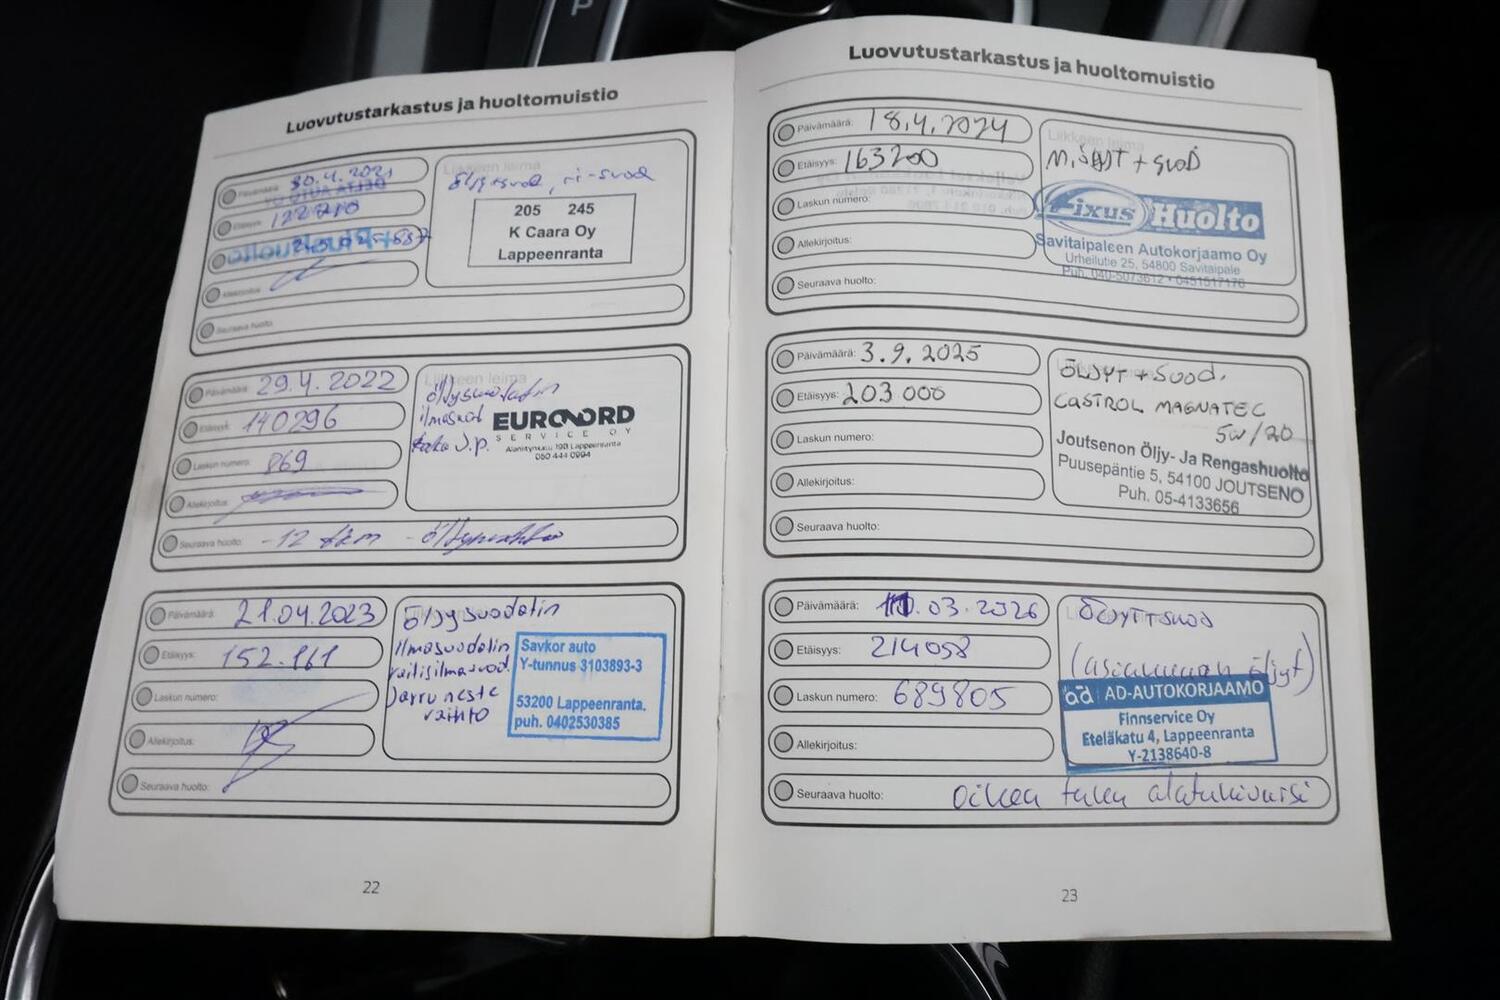 P
Luovutustarkastus ja huoltomuistio
Päivämäärä: 30.4.2021
Etäisyys: 122210
Allekirjoitus:
Seuraava huolto:
Liikkeen leima
Öljynsuod, ri-suod
205 245
K Caara Oy
Lappeenranta
Päivämäärä: 29.4.2022
Etäisyys: 140296
Laskun numero: 869
Allekirjoitus:
Seuraava huolto: -12 tkm - öljynvaihto
Liikkeen leima
Öljysuodatin
ilmasuod
J.P.
EURONORD
SERVICE OY
Lappeenranta
050 444 0994
Päivämäärä: 21.04.2023
Etäisyys: 152.161
Laskun numero:
Allekirjoitus:
Seuraava huolto:
Öljysuodatin
ilmasuodatin
raitisilmasuod.
Jarru neste
vaihto
Savkor auto
Y-tunnus 3103893-3
53200 Lappeenranta.
puh. 0402530385
22
Luovutustarkastus ja huoltomuistio
Päivämäärä: 18.4.2024
Etäisyys: 163200
Laskun numero:
Allekirjoitus:
Seuraava huolto:
Liikkeen leima
M.ÖLJYT + SUOD
Fixus Huolto
Savitaipaleen Autokorjaamo Oy
Urheilutie 25, 54800 Savitaipale
Puh. 040-5073612 • 0451517176
Päivämäärä: 3.9.2025
Etäisyys: 203.000
Laskun numero:
Allekirjoitus:
Seuraava huolto:
ÖLJYT + SUOD.
CASTROL MAGNATEC
5W/20
Joutsenon Öljy- Ja Rengashuolto
Puusepäntie 5, 54100 JOUTSENO
Puh. 05-4133656
Päivämäärä: 10.03.2026
Etäisyys: 214058
Laskun numero: 689805
Allekirjoitus:
Seuraava huolto: Oikea tuken alatukivarsi
ÖLJYT+SUOD
(asiakkaan öljyt)
ad AD-AUTOKORJAAMO
Finnservice Oy
Eteläkatu 4, Lappeenranta
Y-2138640-8
23